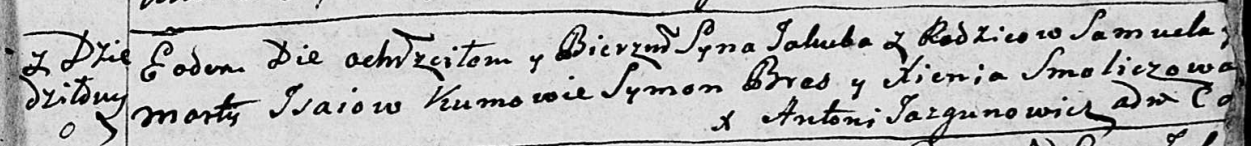 z Dzie
dziłowy
Eodem Die ochrzciłem y Bierzmł Syna Jakuba z Rodzicow Samuela y
Marty Isaiow Kumowie Symon Bras y Xienia Smoliczowa
x Antoni Jazgunowicz adm Co